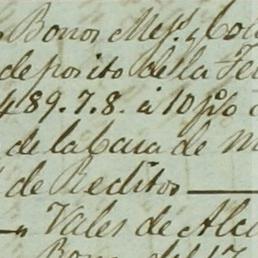 Bonos Mejs. y Co
deposito de la Te
489.7.8. a 10 p%
de la Casa de M
de Reditos
Vales de Alc
Bonos del 17